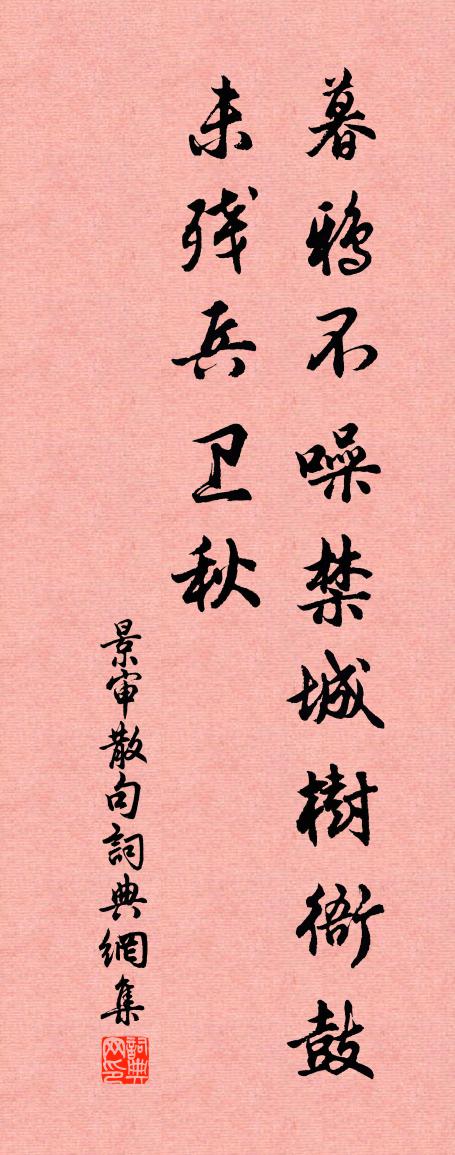 暮鴉不噪禁城樹衙鼓
未殘兵卫秋
景审散句詞典網集
詞典网印